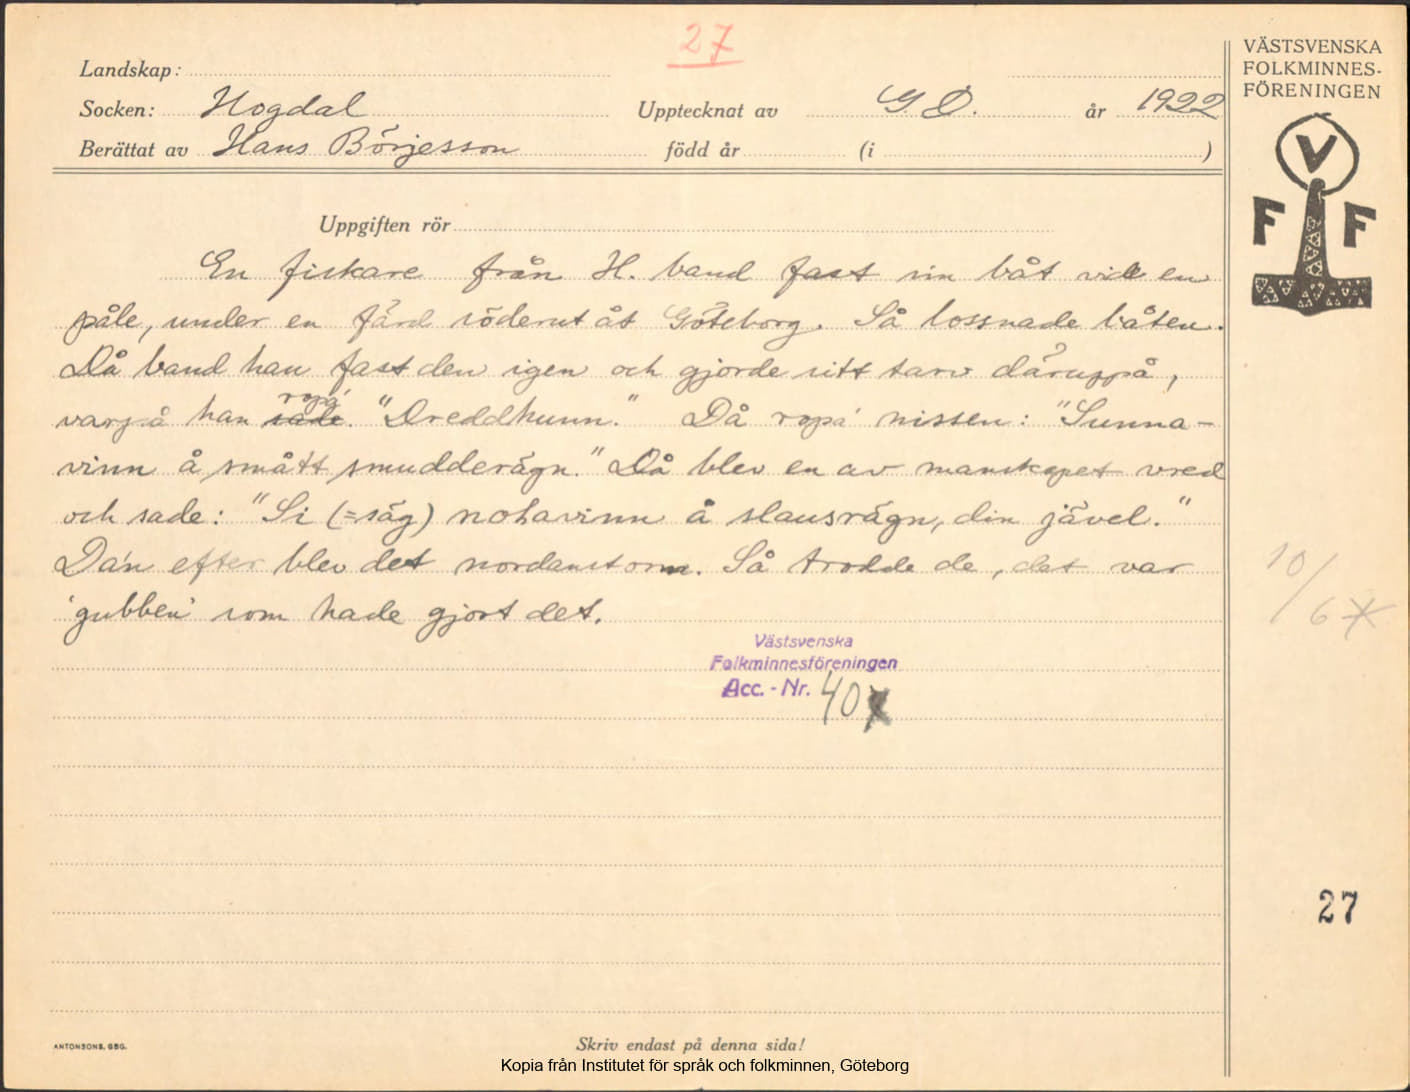 27
VÄSTSVENSKA
FOLKMINNES-
FÖRENINGEN
Landskap:
Socken: Hogdal Upptecknat av G. D. år 1922
Berättat av Hans Börjesson född år (i )
V
F F
Uppgiften rör
En fiskare från H. band fast sin båt vid en
påle, under en färd söderut åt Göteborg. Så lossnade båten.
Då band han fast den igen och gjorde sitt tarv däruppå,
varpå han sade ropa'. "Dreddhunn." Då ropa' nissen: "Sunna-
vinn å smått smudderägn." Då blev en av manskapet vred
och sade: "Si (=säg) nohavinn å slausrägn, din jävel."
Da'n efter blev det nordanstorm. Så trodde de, det var
'gubben' som hade gjort det.
10/6
Västsvenska
Folkminnesföreningen
Acc.-Nr. 40
27
ANTONSONS, GBG.
Skriv endast på denna sida!
Kopia från Institutet för språk och folkminnen, Göteborg